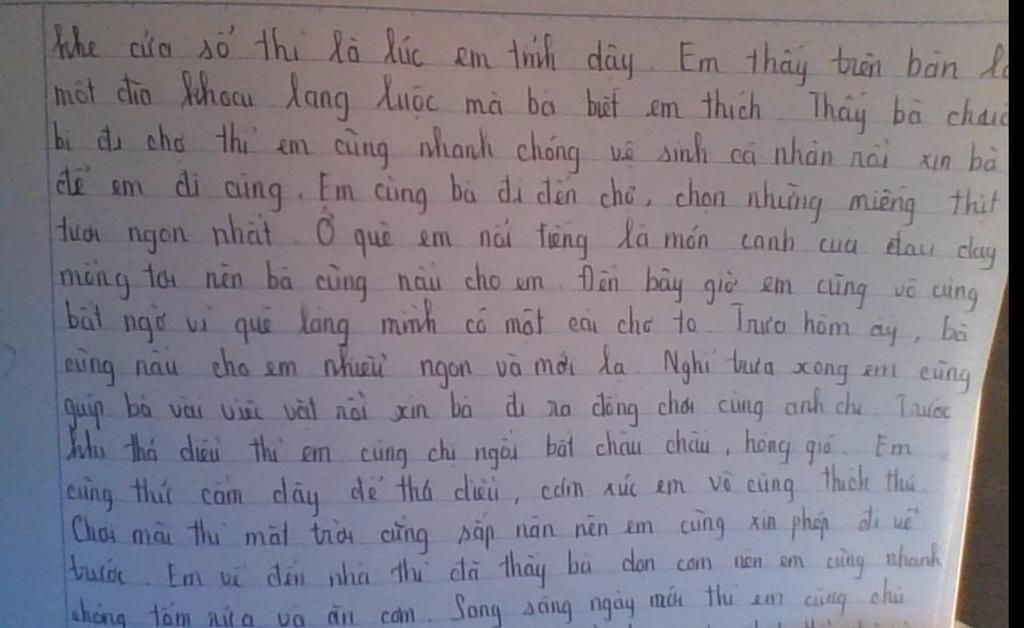 khe cửa sổ thì là lúc em tỉnh dậy. Em thấy trên bàn là
một đĩa khoai lang luộc mà bà biết em thích. Thấy bà chuẩ
bị đi chợ thì em cũng nhanh chóng vệ sinh cá nhân rồi xin bà
để em đi cùng. Em cùng bà đi đến chợ, chọn những miếng thịt
tươi ngon nhất. Ở quê em nổi tiếng là món canh cua đay
mồng tơi nên bà cũng nấu cho em. Đến bây giờ em cũng vô cùng
bất ngờ vì quê làng mình có một cái chợ to. Trưa hôm ấy, bà
cũng nấu cho em nhiều ngon và mới lạ. Nghỉ trưa xong em cũng
giúp bà vài việc vặt rồi xin bà đi ra đồng chơi cùng anh chị. Trước
khi thả diều thì em cùng chị ngồi bắt châu chấu, hóng gió. Em
cũng thử cầm dây để thả diều, cảm xúc em vô cùng thích thú.
Chơi mãi thì mặt trời cũng sắp nặn nên em cũng xin phép đi về
trước. Em về đến nhà thì đã thấy bà dọn cơm nên em cũng nhanh
chóng tắm rửa và ăn cơm. Sang sáng ngày mới thì em cũng chủ